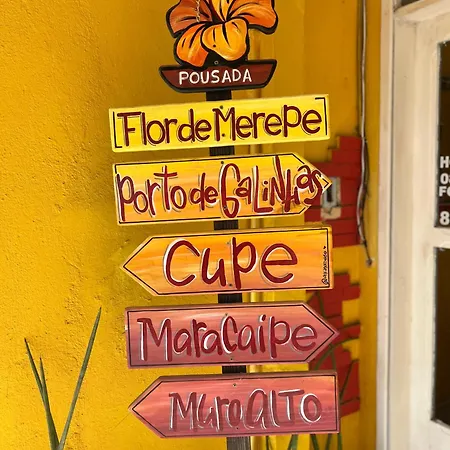 POUSADA
Flor de Merepe
Porto de Galinhas
Cupe
Maracaipe
Muro ALTO